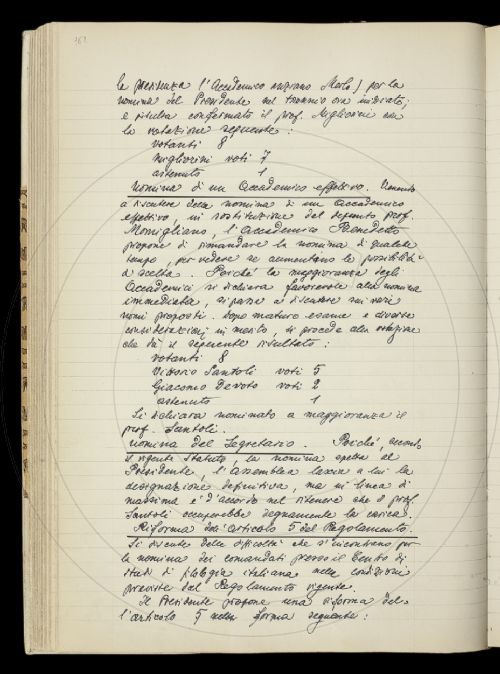 162
la presidenza l'Accademico anziano Merlo) per la
nomina del Presidente nel triennio ora iniziato;
e risulta confermato il prof. Migliorini con
la votazione seguente:
votanti 8
Migliorini voti 7
astenuto 1
Nomina di un Accademico effettivo. Venendo
a discutere della nomina di un Accademico
effettivo, in sostituzione del defunto prof.
Momigliano, l'Accademico Benedetto
propone di rimandare la nomina di qualche
tempo, per vedere se aumentano le possibilità
di scelta. Poiché la maggioranza degli
Accademici si dichiara favorevole alla nomina
immediata, si passa a discutere sui vari
nomi proposti. Dopo maturo esame e diverse
considerazioni in merito, si procede alla votazione
che dà il seguente risultato:
votanti 8
Vittorio Santoli voti 5
Giacomo Devoto voti 2
astenuto 1
Si dichiara nominato a maggioranza il
prof. Santoli.
Nomina del Segretario. Poiché, secondo
il vigente Statuto, la nomina spetta al
Presidente, l'assemblea lascia a lui la
designazione definitiva, ma in linea di
massima è d'accordo nel ritenere che il prof.
Santoli occuperebbe degnamente la carica.
Riforma dell'articolo 5 del Regolamento.
Si discute delle difficoltà che s'incontrano per
la nomina dei comandati presso il Centro di
studi di filologia italiana nelle condizioni
previste dal Regolamento vigente.
Il Presidente propone una riforma del-
l'articolo 5 nella forma seguente: